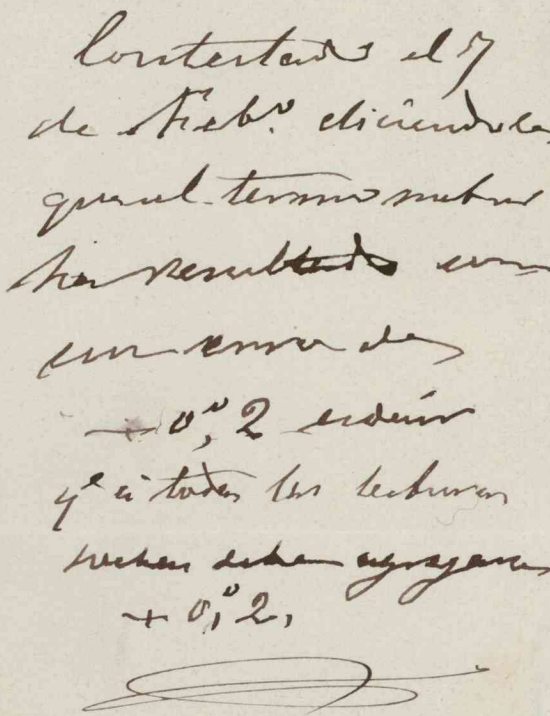 Contestado el 7
de Feb.º diciendole
que el termometro
ha resultado con
un error de
— 0,º2 es decir
q.e á todas las lecturas
hechas deben agregarse
+ 0,º2.